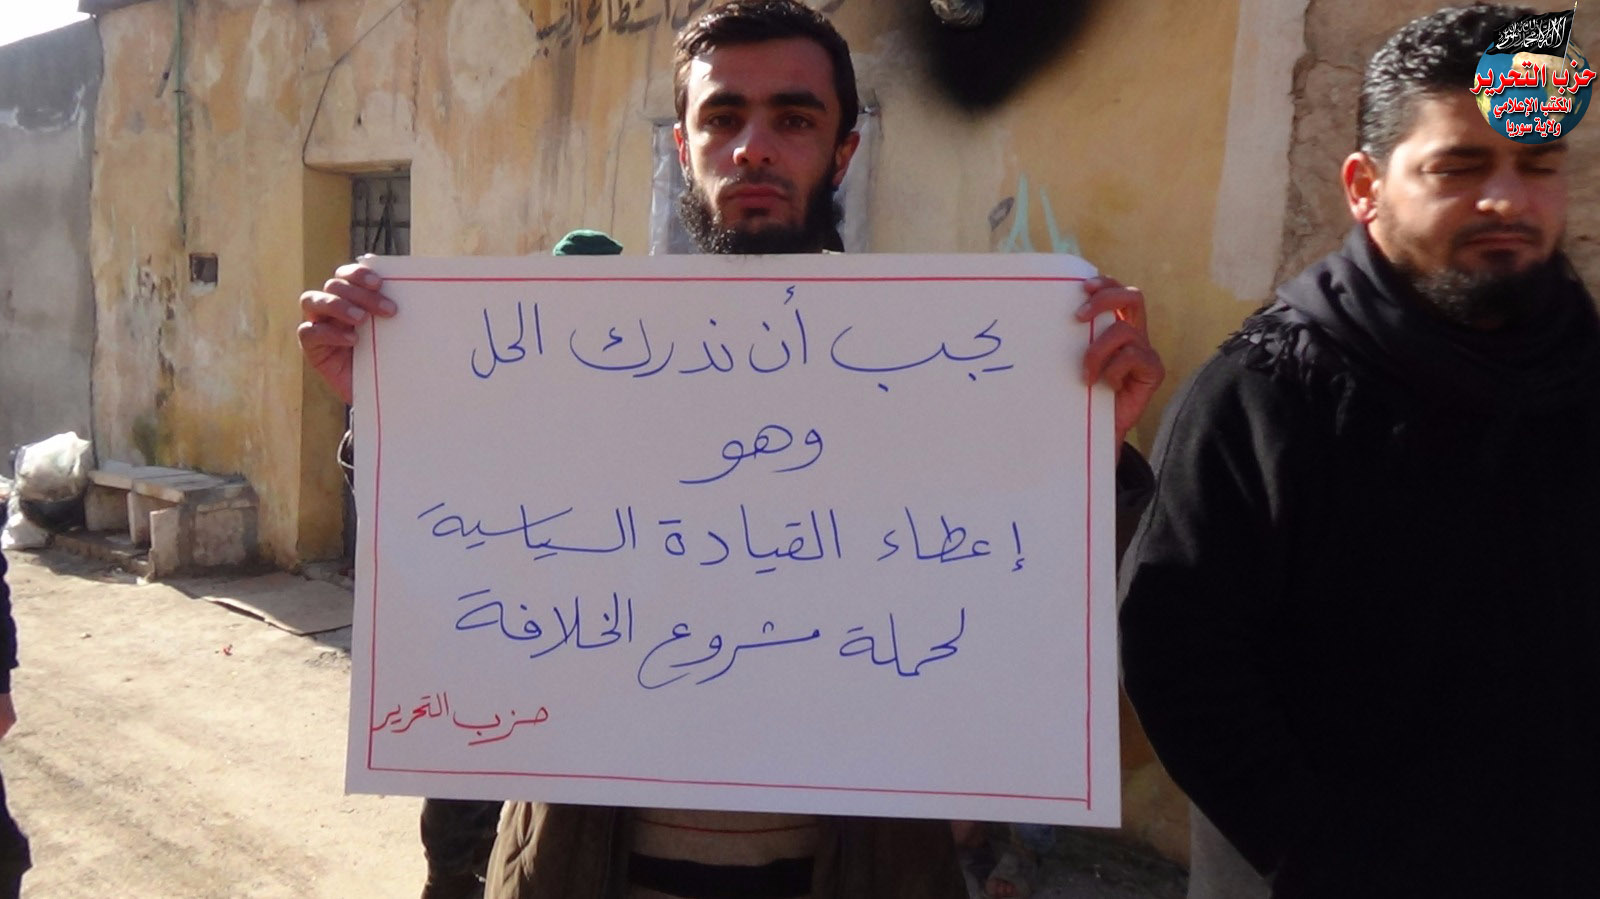 حزب التحرير
المكتب الإعلامي
ولاية سوريا
يجب أن ندرك الحل
وهو
إعطاء القيادة السياسية
لحملة مشروع الخلافة
حزب التحرير